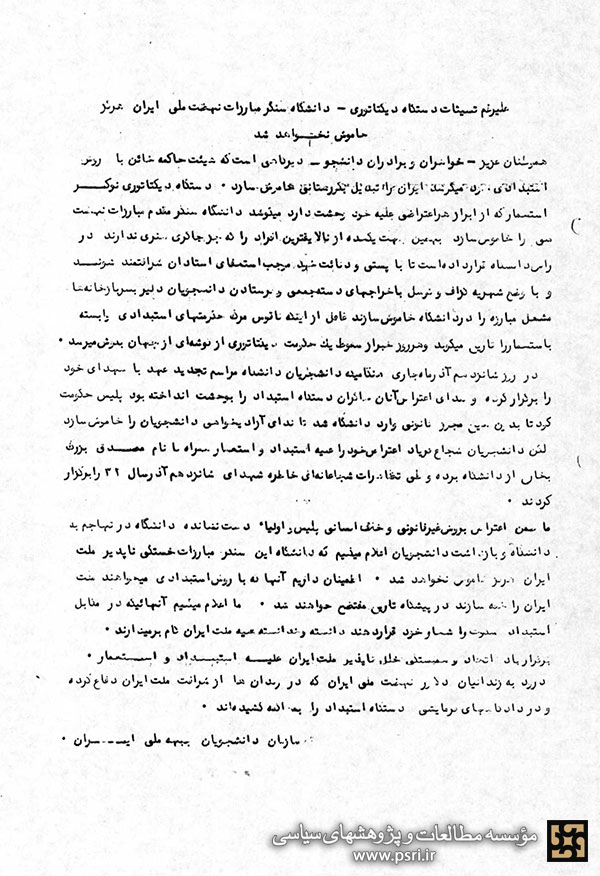 علیرغم تسبثات دستگاه دیکتاتوری – دانشگاه سنگر مبارزات نهضت ملی ایران هرگز
خاموش نخواهد شد
هموطنان عزیز – خواهران و برادران دانشجو – دیرگاهی است که هیئت حاکمه خائن با روش
استبدادی ایران را تبدیل بگورستانی خاموش سازد ۰ دستگاه دیکتاتوری نوکر
استعمار که از ابراز هر اعتراضی علیه خود وحشت دارد میکوشد دانشگاه سنگر مقدم مبارزات نهضت
ملی را خاموش سازد بهمین جهت یکعده از نالایقترین افراد را که جز چاکری هنری ندارند در
رأس دانشگاه قرار داده است تا با پستی و دنائت موجب استعفای استادان شرافتمند شوند
و با وضع شهریه گزاف و توسل باخراجهای دسته جمعی و فرستادن دانشجویان دلیر بسربازخانه ها
مشعل مبارزه را در دانشگاه خاموش سازند غافل از اینکه ناقوس مرگ حکومتهای استبدادی وابسته
باستعمار را تاریخ میکوبد و هر روز خبر از سقوط یک حکومت دیکتاتوری از گوشه ای از جهان بگوش میرسد ۰
در روز شانزدهم آذر ماه جاری هنگامیکه دانشجویان دانشگاه مراسم تجدید عهد با شهدای خود
را برگزار کرده و صدای اعتراض آنان دستگاه استبداد را بوحشت انداخته بود پلیس حکومت
کودتا بدون هیچ مجوز قانونی وارد دانشگاه شد تا ندای آزادیخواهی دانشجویان را خاموش سازد
لکن دانشجویان شجاع فریاد اعتراض خود را علیه استبداد و استعمار همراه با نام مصدق بزرگ
بخارج از دانشگاه برده و طی تظاهرات شجاعانه ای خاطره شهدای شانزدهم آذر سال ۳۲ را برگزار
کردند ۰
ما ضمن اعتراض بروش غیرقانونی و ضد انسانی پلیس و اولیاء دست نشانده دانشگاه در تهاجم به
دانشگاه و بازداشت دانشجویان اعلام میکنیم که دانشگاه این سنگر مبارزات خستگی ناپذیر ملت
ایران هرگز خاموش نخواهد شد ۰ اطمینان داریم آنها که با روش استبدادی میخواهند ملت
ایران را خفه سازند در پیشگاه تاریخ مفتضح خواهند شد ۰ ما اعلام میکنیم آنهائیکه در مقابل
استبداد سکوت را شعار خود قرار دهند دانسته و ندانسته علیه ملت ایران گام برمیدارند ۰
برقرار باد اتحاد و همبستگی خلل ناپذیر ملت ایران علیه استبداد و استعمار ۰
درود به زندانیان دلاور نهضت ملی ایران که در زندان ها از شرافت ملت ایران دفاع کرده
و در دادگاههای فرمایشی دستگاه استبداد را به محاکمه کشیده اند ۰
سازمان دانشجویان جبهه ملی ایران ۰
مؤسسه مطالعات و پژوهشهای سیاسی
www.psri.ir